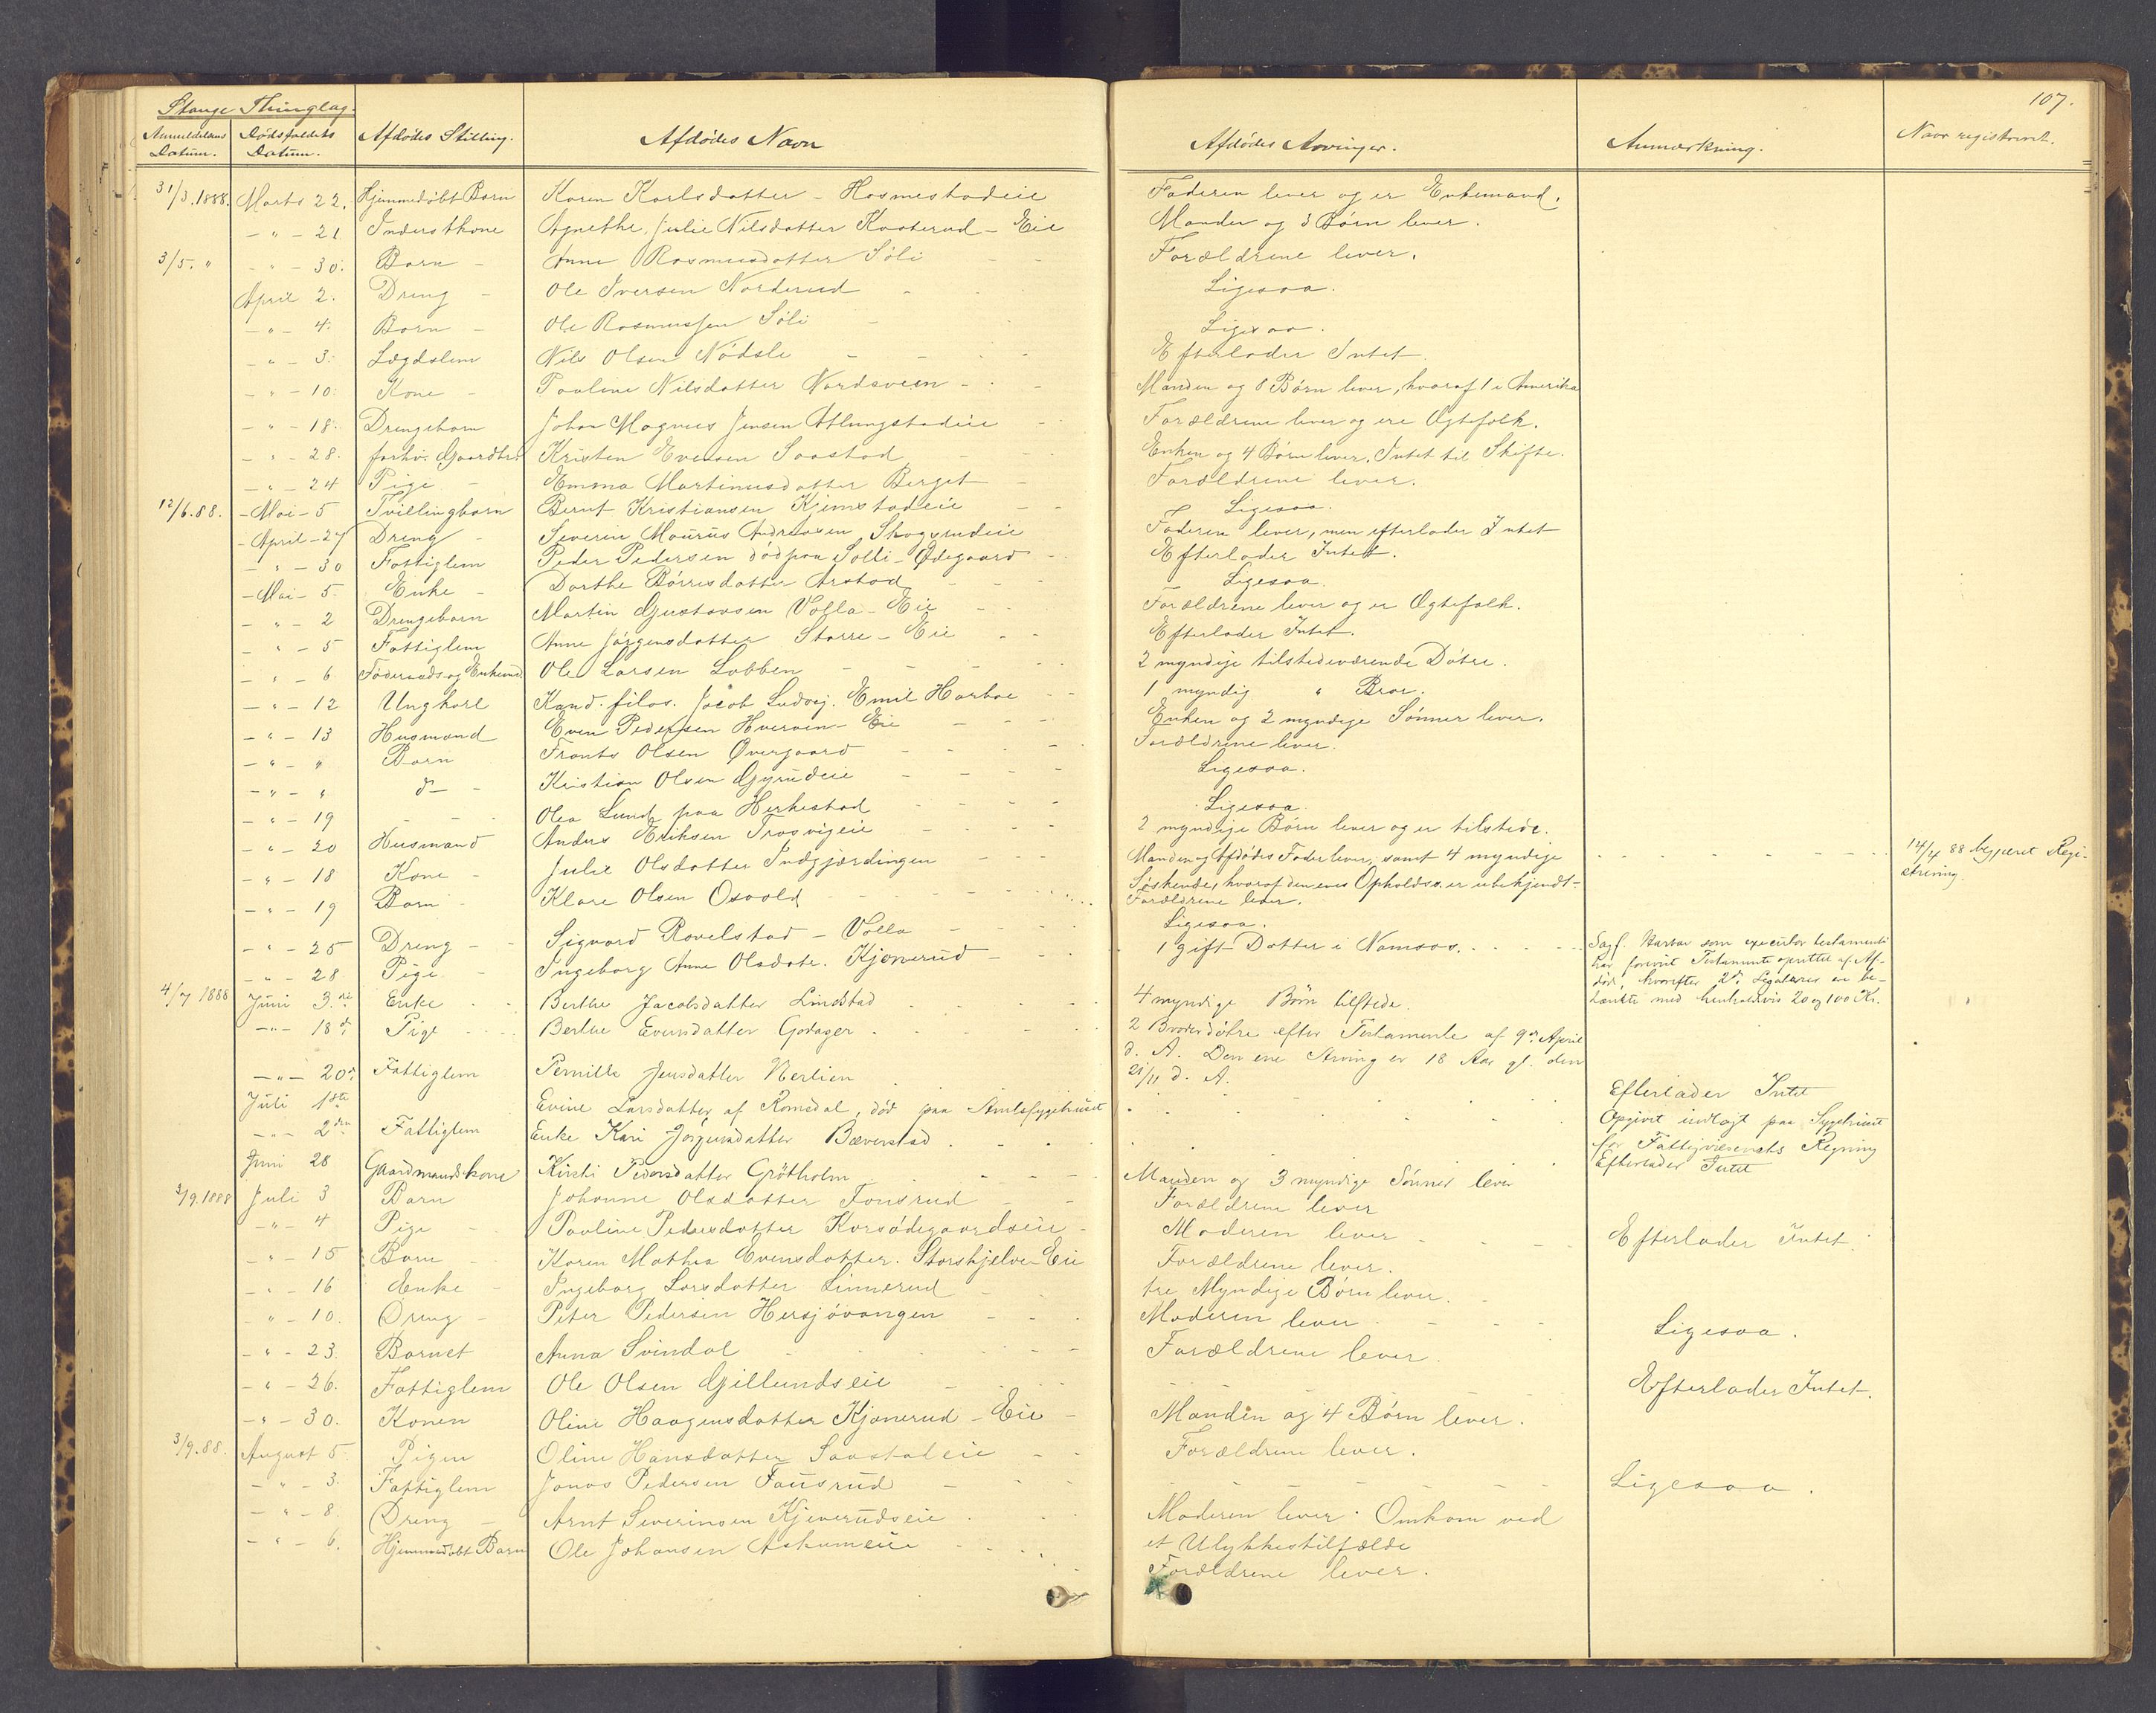 Stange Thinglag.
107.
Anmeldelsens Datum. Dødsfaldets Datum. Afdødes Stilling. Afdødes Navn Afdødes Arvinger. Anmærkning. Naar registreret.
31/3.1888. Marts 22. Hjemmedøbt Barn Karen Karlsdatter - Rosmestadeie Faderen lever og er Enkemand.
- " - 21 Inderstkone Agnethe Julie Nilsdatter Kaaterud - Eie Manden og 3 Børn lever.
3/5. " - " - 30. Barn - Anne Rasmusdatter Søli Forældrene lever.
April 2. Dreng - Ole Iversen Norderud Ligesaa.
- " - 4. Barn - Ole Rasmussen Søli Ligesaa.
- " - 3. Lægdslem Nils Olsen Nødsle Efterlader Intet.
- " - 10. Kone - Pauline Nilsdatter Nordsveen Manden og 8 Børn lever, hvoraf 1 i Amerika
- " - 18. Drengebarn Johan Magnus Jensen Atlungstadeie Forældrene lever og ere Ægtefolk.
- " - 28. forhv. Gaardbr. Kristen Evensen Saastad Enken og 4 Børn lever. Intet til Skifte.
- " - 24 Pige - Emma Martinusdatter Berget Forældrene lever.
12/6.88. - Mai - 5 Tvillingbarn Bernt Kristiansen Kjemstadeie Ligesaa.
- April - 27 Dreng - Severin Maurus Andreasen Skogsrudeie Faderen lever, men efterlader Intet
- " - 30 Fattiglem Peder Pedersen død paa Solli - Ødegaard Efterlader Intet.
- Mai - 5. Enke - Dorthe Børresdatter Arstad Ligesaa.
- " - 2 Drengebarn Martin Gustavsen Volla - Eie Forældrene lever og er Ægtefolk.
- " - 5 Fattiglem Anne Jørgensdatter Starre - Eie Efterlader Intet.
- " - 6 Føderaads og Enkemd Ole Larsen Labben 2 myndige tilstedeværende Døtre.
- " - 12 Ungkarl Kand. filos. Jacob Ludvig Emil Harboe 1 myndig " Bror.
- " - 13 Husmand Even Pedersen Hverven - Eie Enken og 2 myndige Sønner lever.
- " - " Barn Frants Olsen Øvergaard Forældrene lever.
- " - " do - Kristian Olsen Gyrudeie Ligesaa.
- " - 19 - - Olea Lund paa Herkestad Ligesaa
- " - 20 Husmand Anders Eriksen Trosvigeie 2 myndige Børn lever og er tilstede.
- " - 18 Kone - Julie Olsdatter Indgjærdingen Manden og Afdødes Fader lever, samt 4 myndige 14/7 88 begjæret Regi-
Søskende, hvoraf den enes Opholdss. er ubekjendt - strering.
- " - 19 Barn Klare Olsen Osvold Forældrene lever.
- " - 25 Dreng - Sigvard Ravelstad - Volla Ligesaa.
- " - 28 Pige - Ingeborg Anne Olsdatr. Kjønerud 1 gift Datter i Namsos. Sagf. Harboe som executor testamenti
har forevist Testamente oprettet af Af-
død, hvorefter 2de Legatarer er be-
tænkte med henholdsvis 20 og 100 Kr.
4/7 1888 Juni 3.die Enke Berthe Jacobsdatter Lindstad 4 myndige Børn tilstede.
- " - 18 d. Pige Berthe Evensdatter Godager 2 Broderdøtre efter Testamente af 9de April
d. A. Den ene Arving er 18 Aar gl. den
21/11 d. A.
- " - 20d. Fattiglem Pernille Jensdatter Nerlien Efterlader Intet
Juli 1ste Evine Larsdatter af Romedal, død paa Amtssygehuset Opgivet indlagt paa Sygehuset
for Fattigvæsenets Regning
- " - 2den Fattiglem Enke Kari Jørgensdatter Bæverstad Efterlader Intet
Juni 28 Gaardmandskone Kirsti Pedersdatter Grøtholm Manden og 3 myndige Sønner lever
3/9.1888 Juli 3 Barn Johanne Olsdatter Fonsrud Forældrene lever
- " - 4 Pige Pauline Pedersdatter Korsødegaardseie Moderen lever Efterlader Intet.
- " - 15 Barn Karen Mathea Evensdatter Storskjelve - Eie Forældrene lever.
- " - 16 Enke Ingeborg Larsdatter Linnerud tre Myndige Børn lever.
- " - 10. Dreng Peter Pedersen Hersjøvangen Moderen lever Ligesaa.
- " - 23. Barnet Anna Svindal Forældrene lever
- " - 26. Fattiglem Ole Olsen Gillundseie Efterlader Intet.
- " - 30. Konen Oline Haagensdatter Kjønerud - Eie Manden og 4 Børn lever.
3/9.88. August 5 Pigen Oline Hansdatter Saastadeie Forældrene lever.
- " - 3. Fattiglem Jonas Pedersen Fausrud Ligesaa.
- " - 8. Dreng - Arnt Severinsen Kjeverudseie Moderen lever. Omkom ved
et Ulykkestilfælde
- " - 6. Hjemmedøbt Barn Ole Johansen Askumeie Forældrene lever.